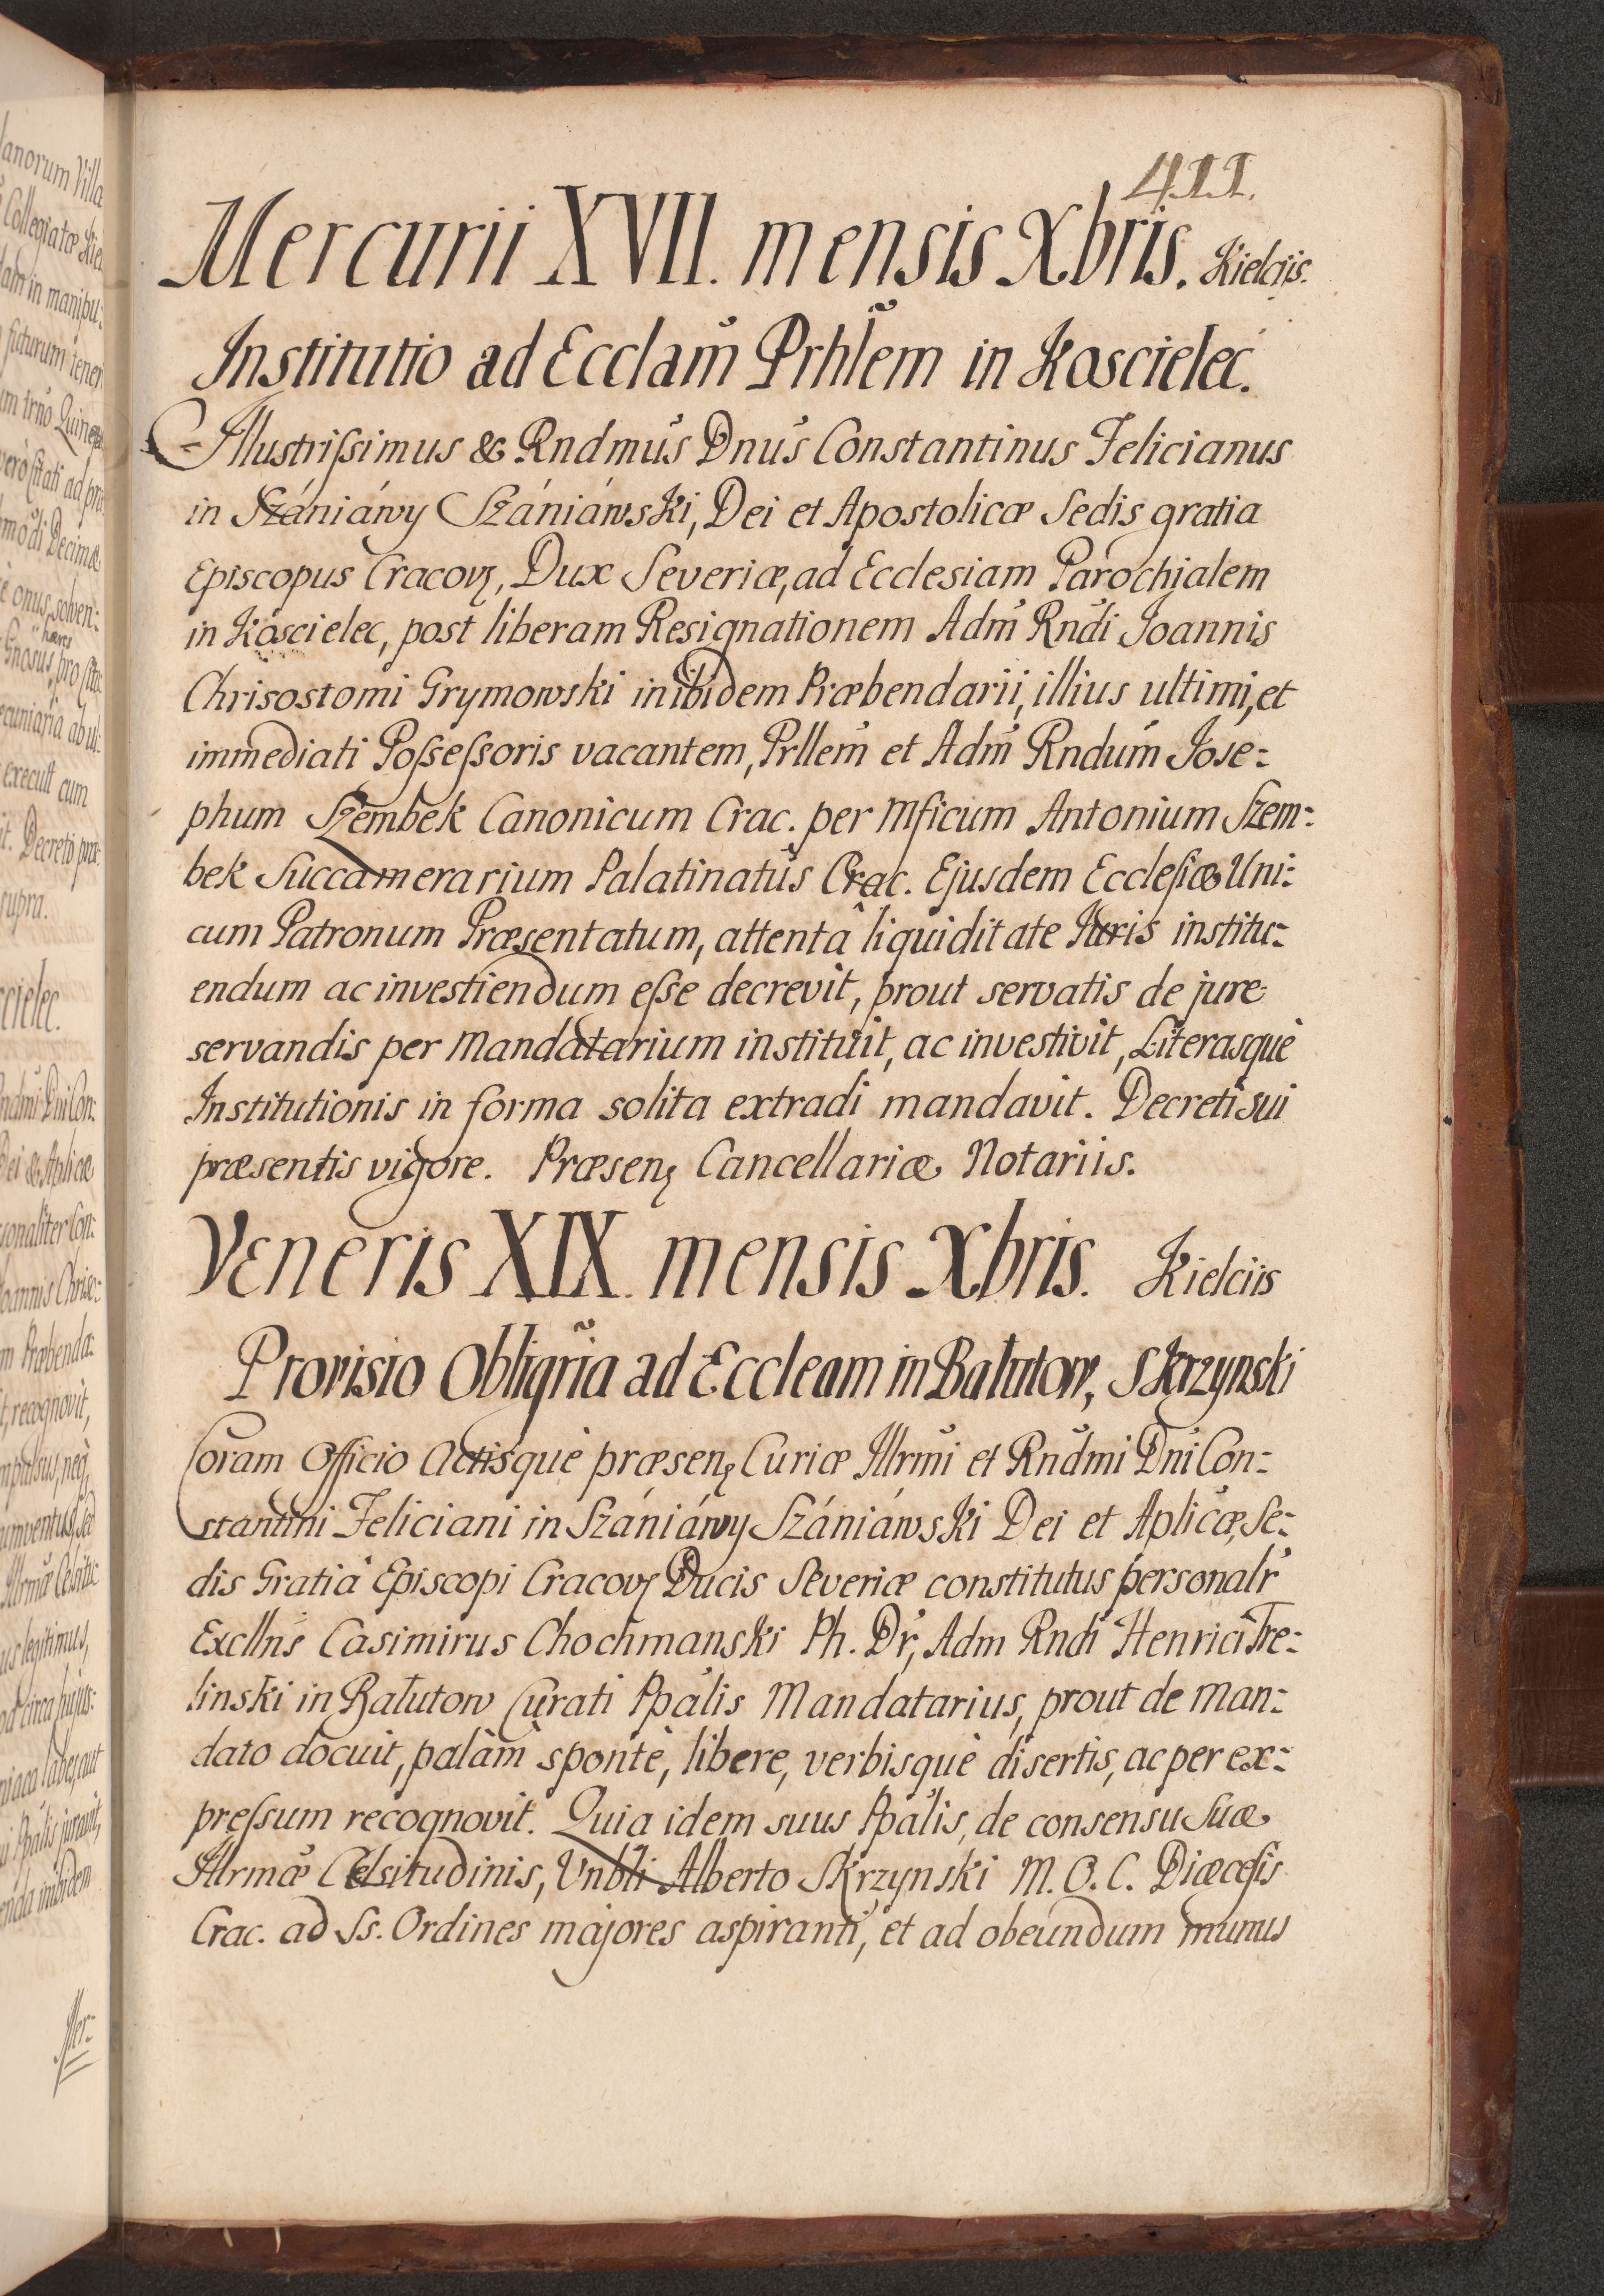 411.
Mercurii XVII. mensis Xbris. Kielciis.
Institutio ad Ecclam̃ Prhlem̃ in Koscielec.
Illustrissimus & Rndmus Dnus Constantinus Felicianus
in Szániáwy Szániáwski, Dei et Apostolicæ Sedis gratia
Episcopus Cracovẓ, Dux Severiæ, ad Ecclesiam Parochialem
in Koscielec, post liberam Resignationem Adm Rndi Joannis
Chrisostomi Grymowski inibidem Præbendarii, illius ultimi, et
immediati Possessoris vacantem, Prllem et Adm Rndum Jose:
phum Szembek Canonicum Crac. per Mficum Antonium Szem:
bek Succamerarium Palatinatus Crac. Ejusdem Ecclesiæ Uni:
cum Patronum Præsentatum, attentâ liquiditate Iuris institu:
endum ac investiendum esse decrevit, prout servatis de jure
servandis per Mandatarium instituit, ac investivit, Literasquè
Institutionis in forma solita extradi mandavit. Decreti sui
præsentis vigore. Præsenẓ Cancellariæ Notariis.
Veneris XIX. mensis Xbris. Kielciis
Provisio Obligria ad Eccleam in Bałutow, Skrzynski
Coram Officio Actisquè præsenẓ Curiæ Illrmi et Rndmi Dni Con:
stantini Feliciani in Szániáwy Szániáwski Dei et Aplicæ Se:
dis Gratiâ Episcopi Cracovẓ Ducis Severiæ constitutus personalr
Excllns Casimirus Chochmanski Ph. Dr, Adm Rndi Henrici Tre:
linski in Bałutow Curati Ppalis Mandatarius, prout de Man:
dato docuit, palàm spontè, libere, verbisquè disertis, ac per ex:
pressum recognovit. Quia idem suus Ppalis, de consensu Suæ
Illrmæ Celsitudinis, Vnbli Alberto Skrzynski M. O. C. Diæcesis
Crac. ad Ss. Ordines majores aspiranti, et ad obeundum munus